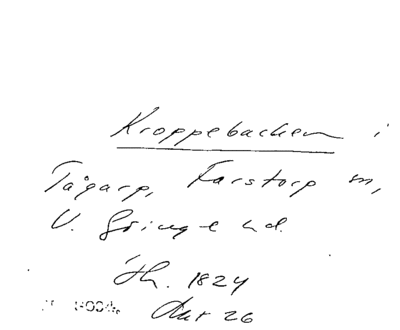 Kroppebacken i
Tågarp, Farstorp sn,
V. Göinge hd.
1824
Akt 26